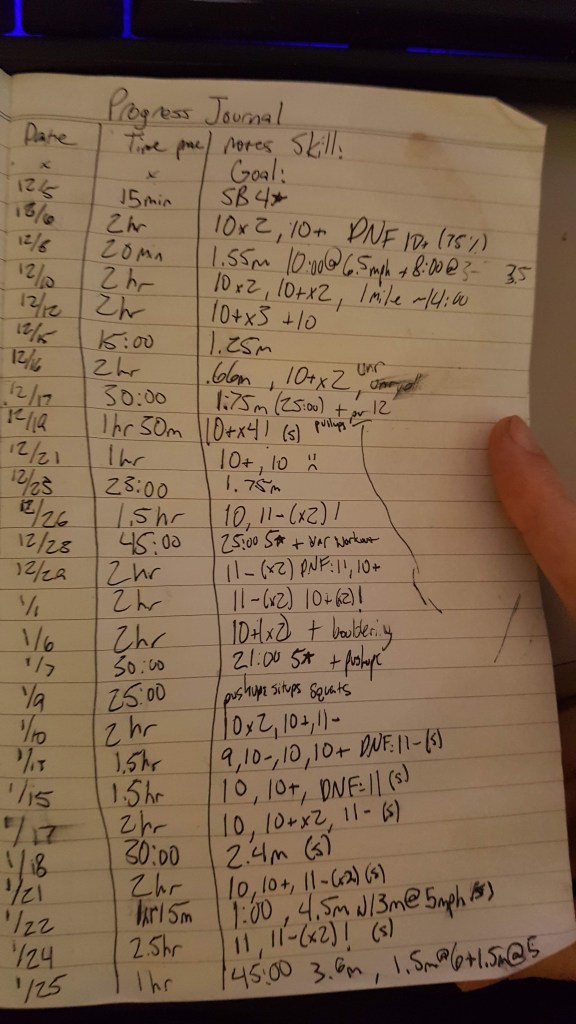 Progress Journal
Date Time notes Skill:
x x Goal:
12/5 15min SB 4*
12/6 2hr 10x2, 10+ DNF 10+ (75%)
12/8 20min 1.55m 10:00@6.5mph + 8:00@ 3.5
12/10 2hr 10x2, 10+x2, 1 mile ~14:00
12/12 2hr 10+x3 +10
12/15 15:00 1.25m
12/16 2hr .66m, 10+x2,
12/17 30:00 1.75m (25:00) + 12
12/19 1hr 30m 10+x4! (s) pullups
12/21 1hr 10+, 10 :(
12/23 23:00 1.75m
12/26 1.5hr 10, 11-(x2)!
12/28 45:00 25:00 5* + workout
12/29 2hr 11-(x2) DNF:11, 10+
1/1 2hr 11-(x2) 10+(x2)!
1/6 2hr 10+(x2) + bouldering
1/7 30:00 21:00 5* + pushups
1/9 25:00 pushups situps squats
1/10 2hr 10x2, 10+, 11-
1/13 1.5hr 9, 10-, 10, 10+ DNF:11-(s)
1/15 1.5hr 10, 10+, DNF:11 (s)
1/17 2hr 10, 10+x2, 11- (s)
1/18 30:00 2.4m (s)
1/21 2hr 10, 10+, 11-(x2) (s)
1/22 1hr15m 1:00, 4.5m w/3m@5mph (s)
1/24 2.5hr 11, 11-(x2)! (s)
1/25 1hr 45:00 3.6m, 1.5m@6+1.5m@5